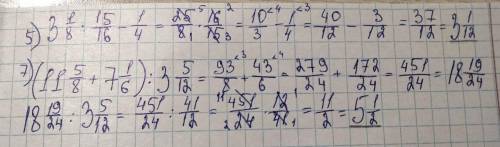 5) 3 1/8 : 15/16 - 1/4 = 25⁵/8₁ · 16²/15₃ = 10^{<4}/3 - 1^{<3}/4 = 40/12 - 3/12 = 37/12 = 3 1/12
7) (11 5/8 + 7 1/6) : 3 5/12 = 93^{<3}/8 + 43^{<4}/6 = 279/24 + 172/24 = 451/24 = 18 19/24
18 19/24 : 3 5/12 = 451/24 : 41/12 = ¹¹451/₂24 · 12¹/41₁ = 11/2 = 5 1/2